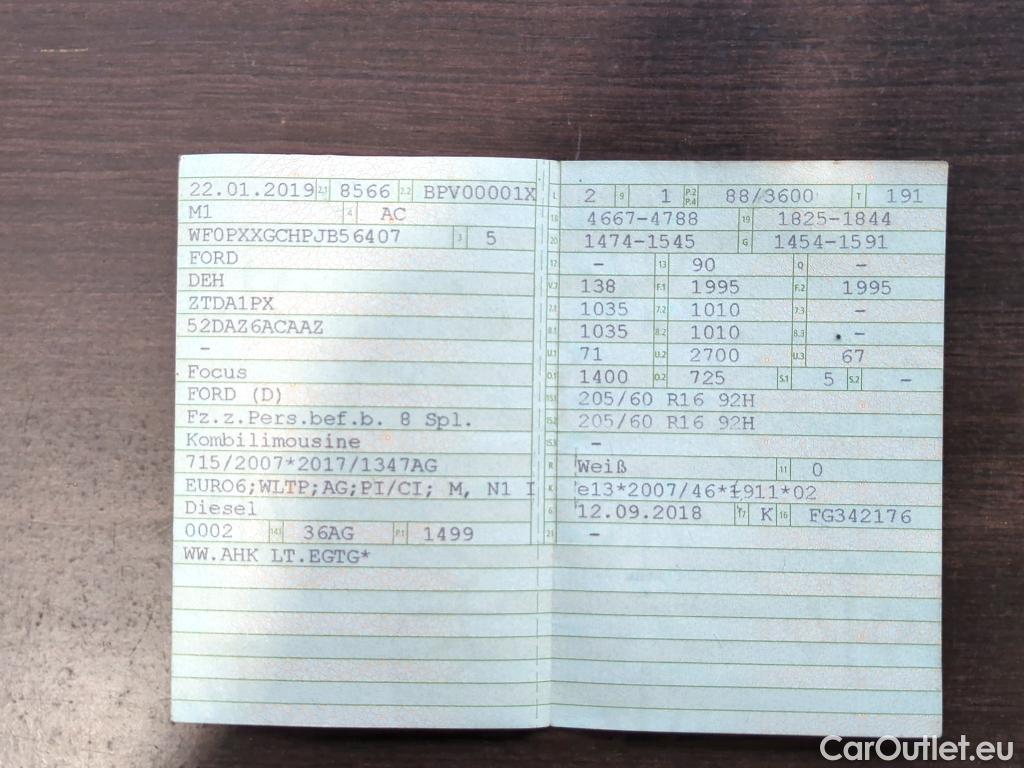 22.01.2019 2.1 8566 2.2 BPV00001X
M1 4 AC
WF0PXXGCHPJB56407 3 5
FORD
DEH
ZTDA1PX
52DAZ6ACAAZ
-
Focus
FORD (D)
Fz.z.Pers.bef.b. 8 Spl.
Kombilimousine
715/2007*2017/1347AG
EURO6;WLTP;AG;PI/CI; M, N1 I
Diesel
0002 14.1 36AG P.1 1499
WW.AHK LT.EGTG*
L 2 9 1 P.2 P.4 88/3600 T 191
18 4667-4788 19 1825-1844
20 1474-1545 G 1454-1591
12 - 13 90 Q -
V.7 138 F.1 1995 F.2 1995
7.1 1035 7.2 1010 7.3 -
8.1 1035 8.2 1010 8.3 -
U.1 71 U.2 2700 U.3 67
O.1 1400 O.2 725 S.1 5 S.2 -
15.1 205/60 R16 92H
15.2 205/60 R16 92H
15.3 -
R Weiß 11 0
K e13*2007/46*1911*02
6 12.09.2018 17 K 16 FG342176
21 -
CarOutlet.eu